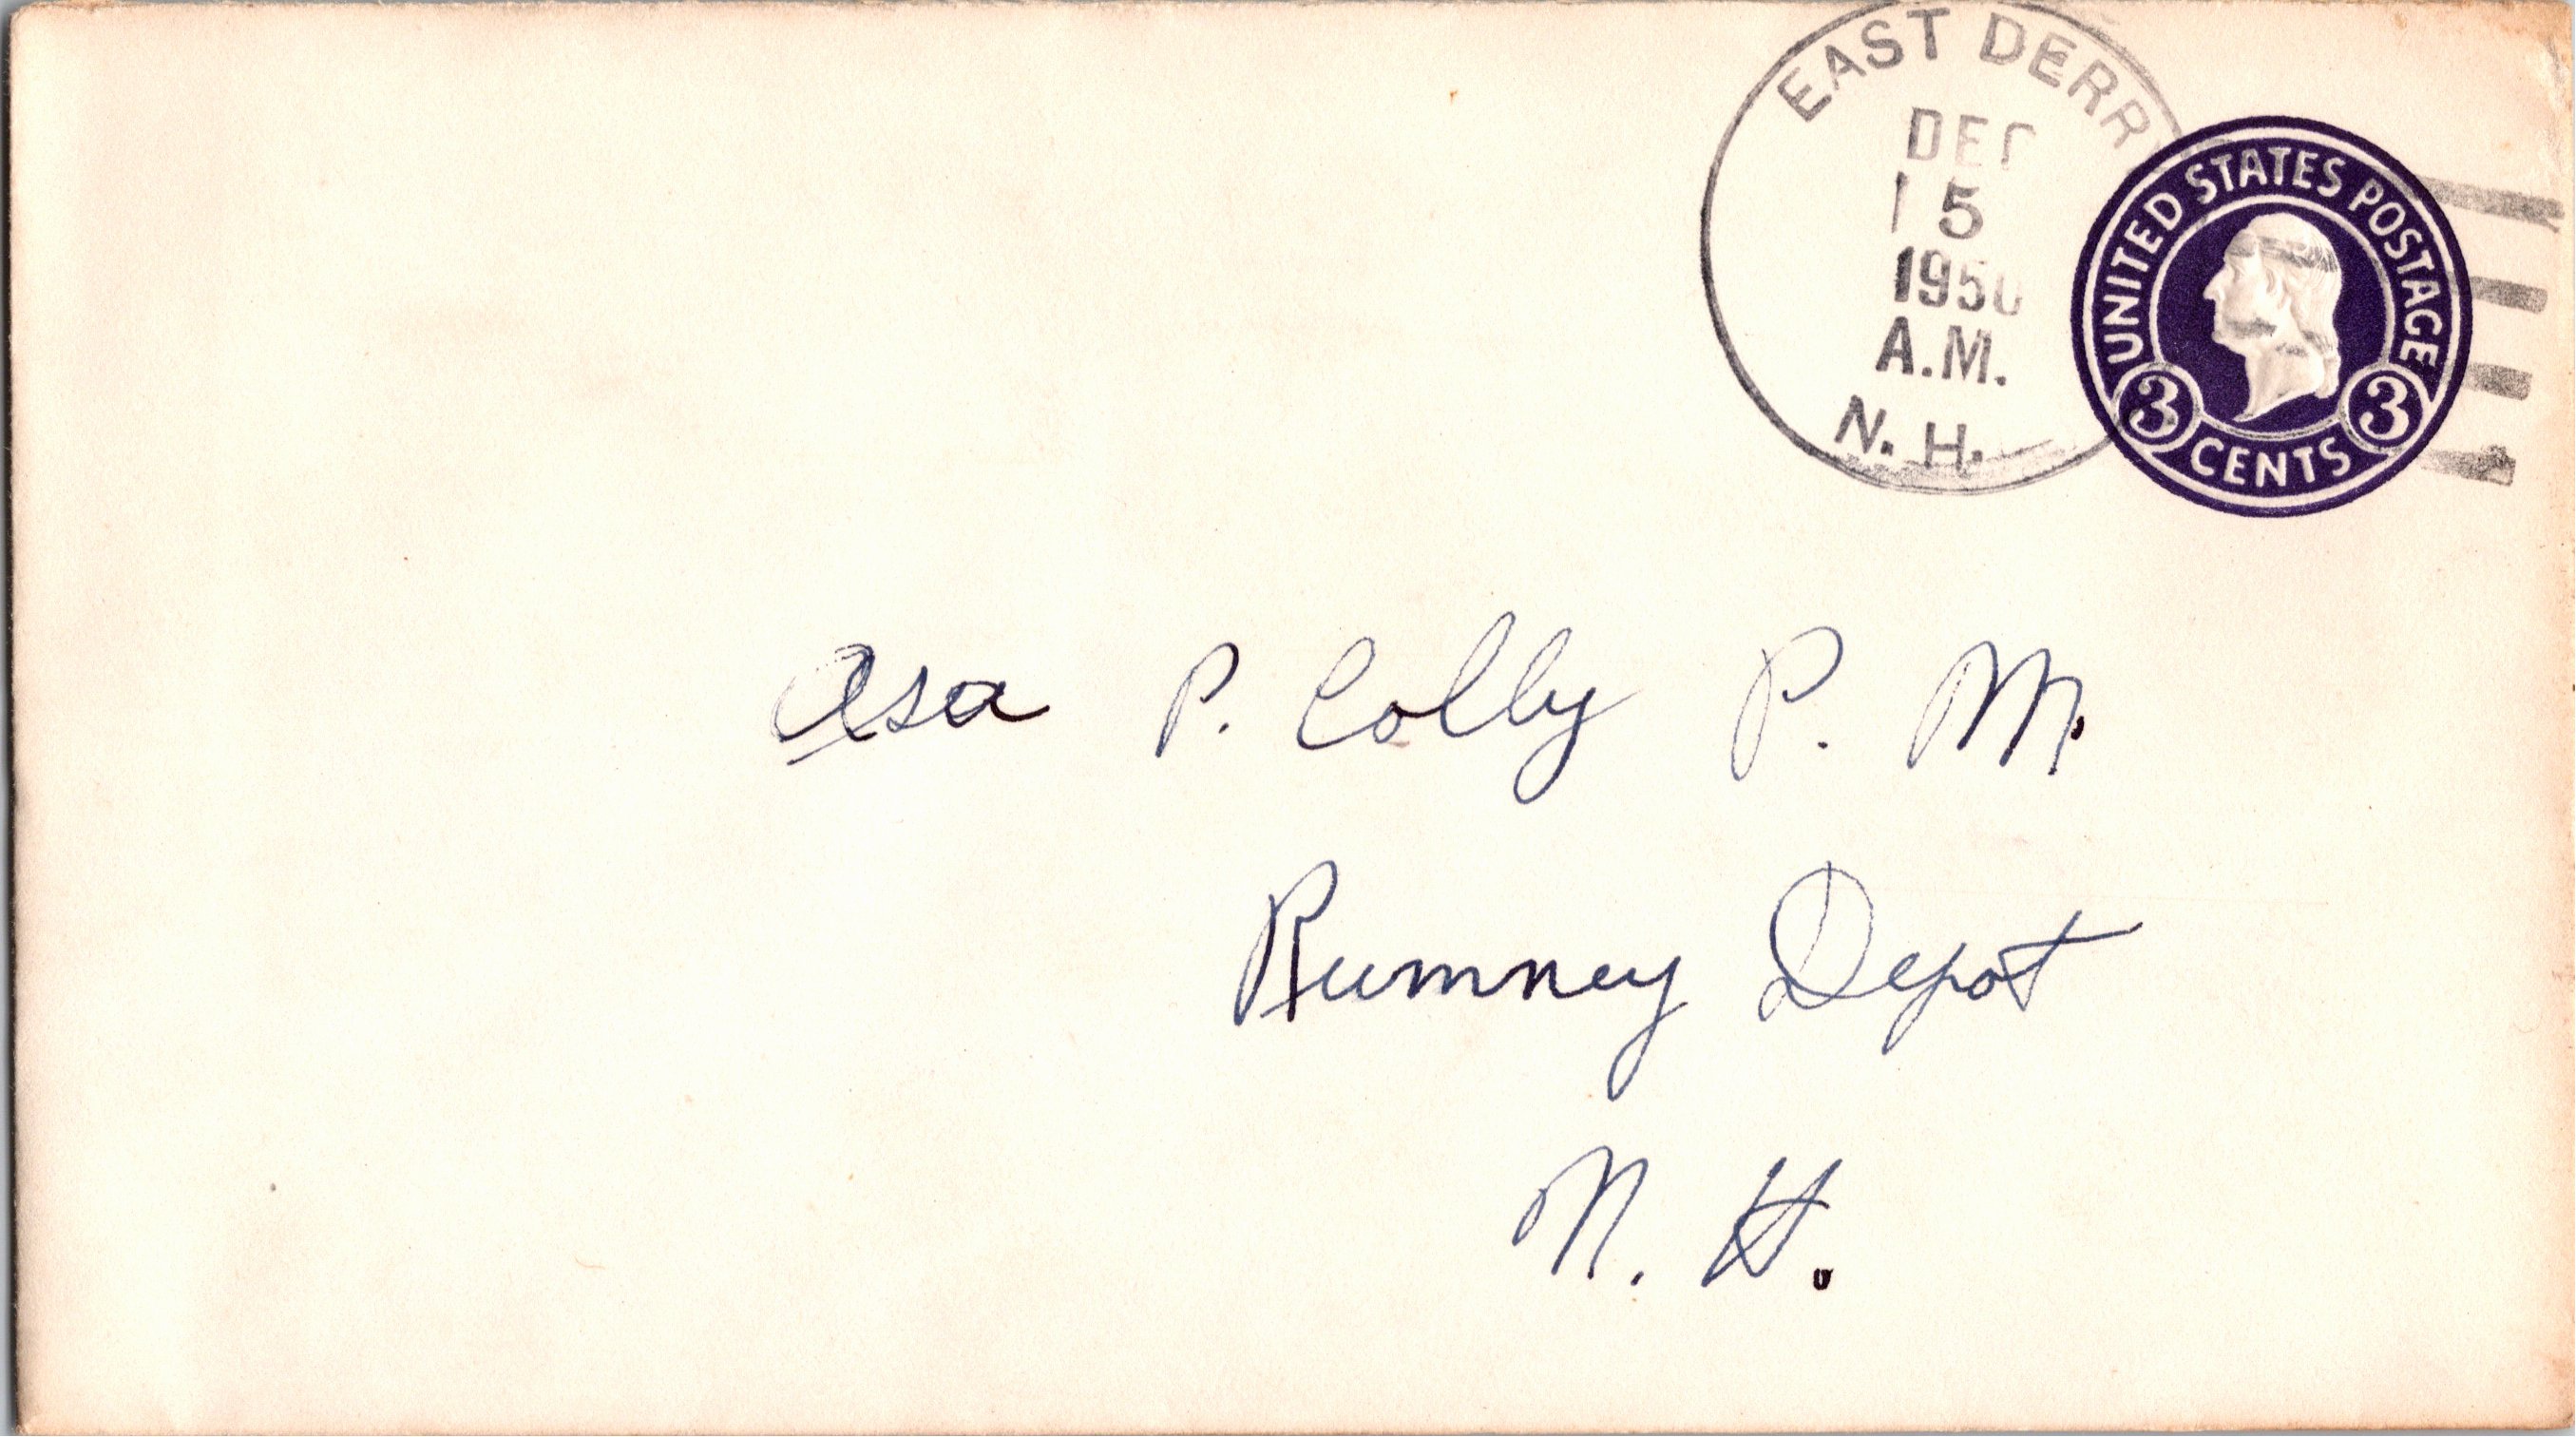 EAST DERRY
DEC
15
1950
A.M.
N. H.
UNITED STATES POSTAGE
3 CENTS 3
Asa P. Colby P. M.
Rumney Depot
N. H.